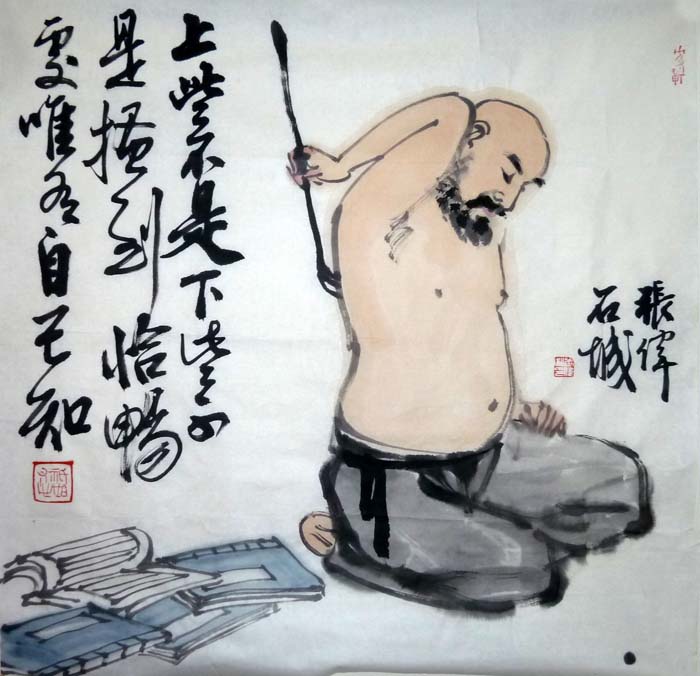 上些不是下些不
是搔到恰暢
處唯自己知
張偉
石城